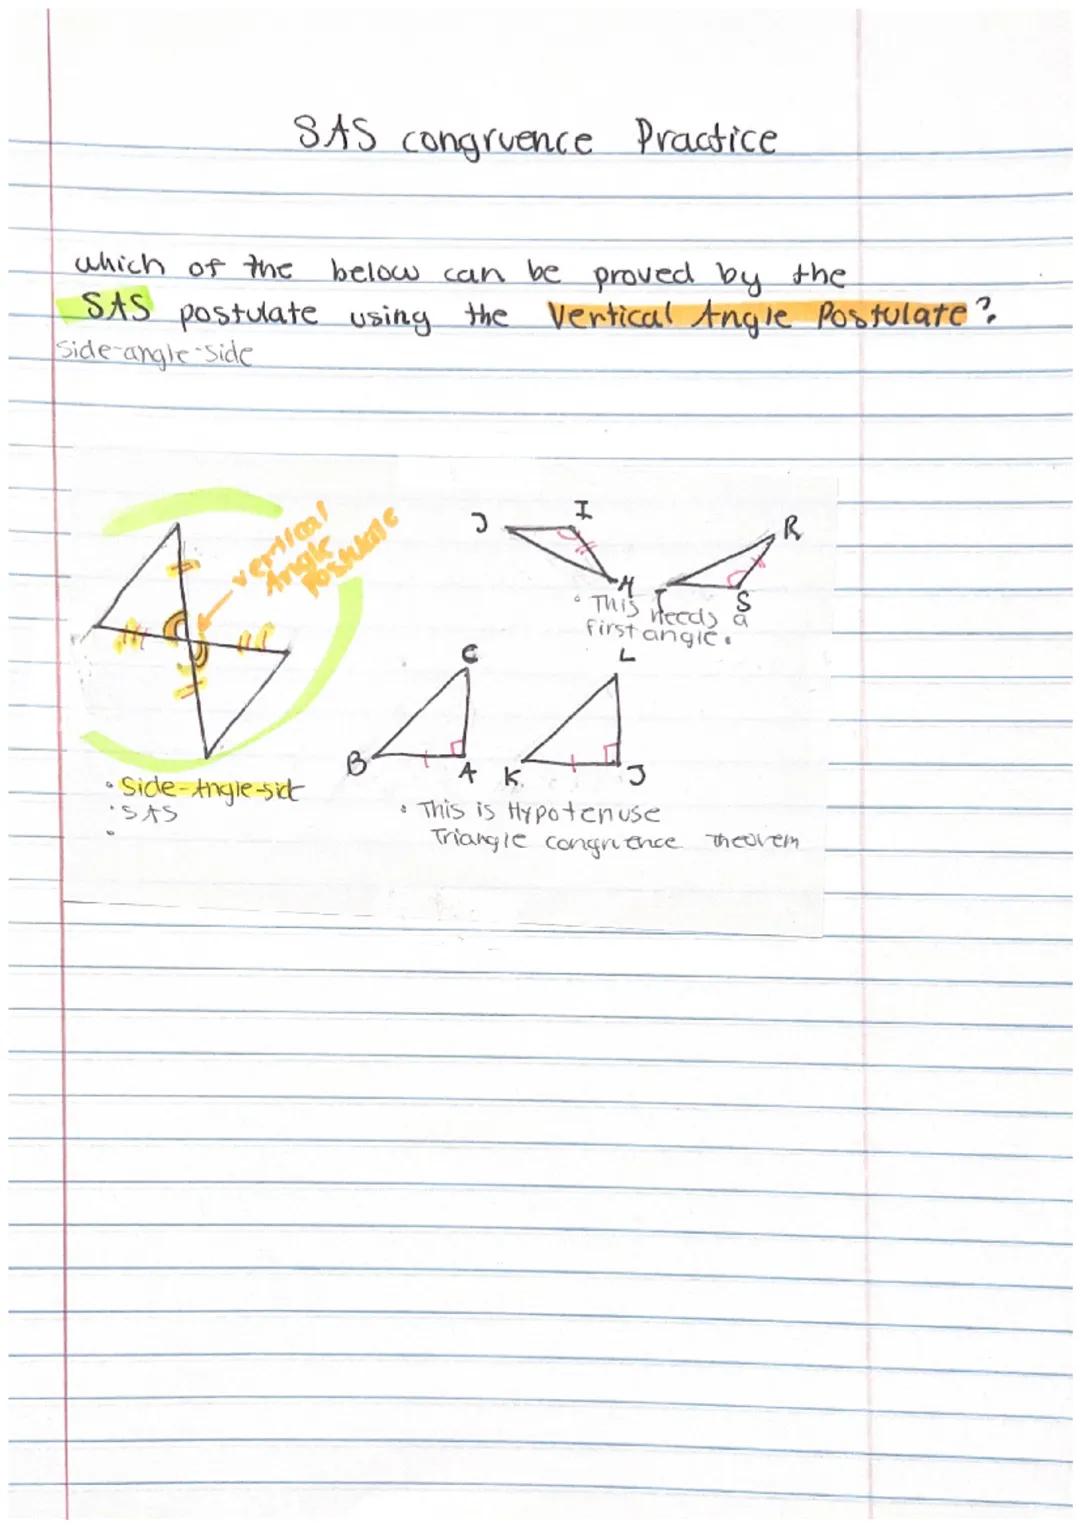 SAS congruence Practice
which of the below can be proved by the
SAS postulate using the Vertical Angle Postulate?
Side-angle-side
vertical
Angle
Postulate
J
I
H
R
S
T
• This needs a
first angle.
C
B
A
L
K
J
• Side-Angle-side
• SAS
•
• This is Hypotenuse
Triangle congruence Theorem